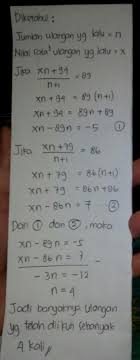 Diketahui :
Jumlah ulangan yg lalu = n
Nilai rata² ulangan yg lalu = x
Jika xn + 94 / n+1 = 89
xn + 94 = 89 (n+1)
xn + 94 = 89n + 89
xn - 89n = -5 ①
Jika xn + 79 / n+1 = 86
xn + 79 = 86 (n+1)
xn + 79 = 86n + 86
xn - 86n = 7 ②
Dari ① dan ②, maka
xn - 89n = -5
xn - 86n = 7 -
-3n = -12
n = 4
Jadi banyaknya ulangan
yg telah diikuti sebanyak
4 kali